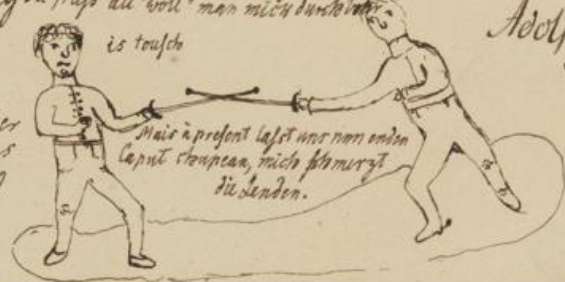 man mich
is tousch
Adolf
er
s
Mais à present lasst uns nun enden
Caput chapeau, mich schmerzt
die Lenden.